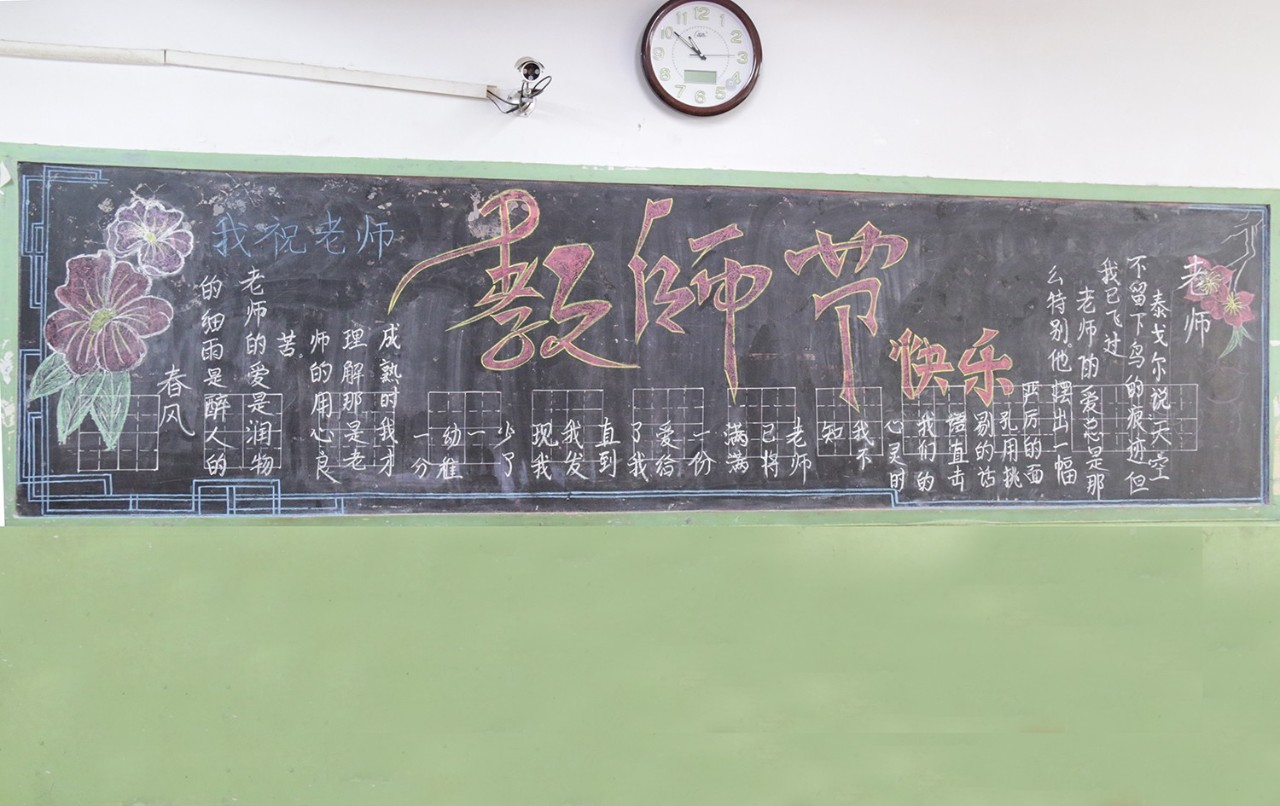 12
1
2
3
4
5
6
7
8
9
10
11
教师节
快乐
我祝老师
老师
泰戈尔说天空
不留下鸟的痕迹但
我已飞过
老师的爱总是那
么特别。他摆出一幅
严厉的面
孔用挑
剔的话
语直击
我们的
心灵的
我不
知
老师
已将
满满
一份
爱给
了我
直到
我发
现我
少了
一
幼稚
一分
成熟时我才
理解那是老
师的用心良
苦。
老师的爱是润物
的细雨是醉人的
春风